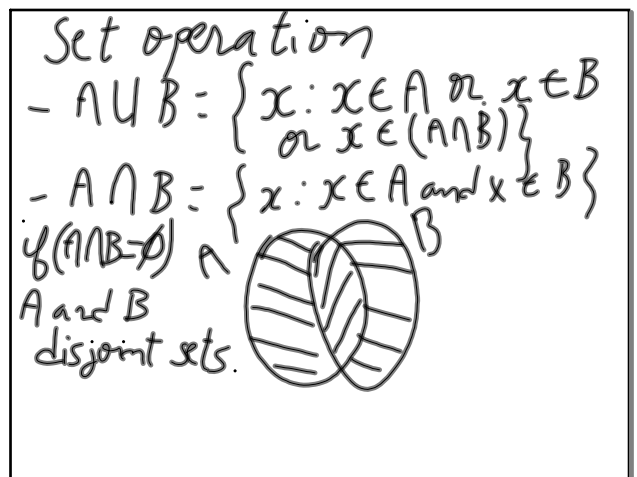 Set operation
- A∪B = {x : x∈A or x∈B
or x∈(A∩B)}
- A∩B = {x : x∈A and x∈B}
if (A∩B=∅)
A B
A and B
disjoint sets.